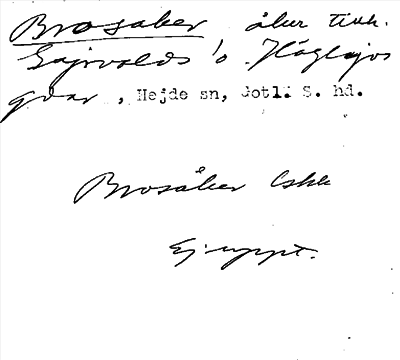 Brosaker, åker tillh.
Gajrvalds 1/8 Höglajvs
gdar, Hejde sn, Gotl. S. hd.
Brosåker Eskk
Ej uppt.